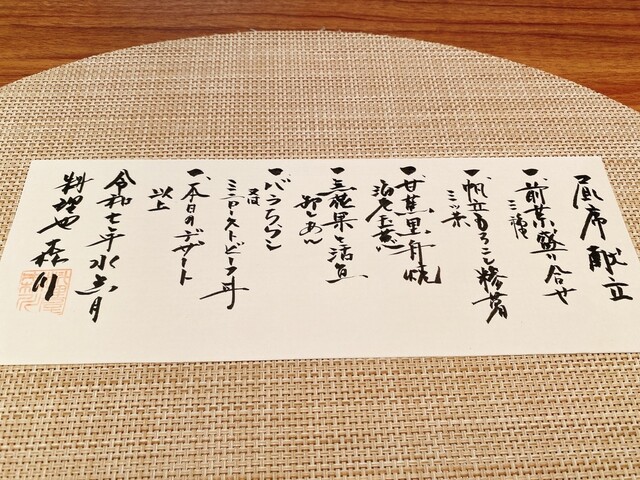 昼席献立
一、前菜盛り合せ
三種
一、帆立もろこし糝薯
三ツ葉
一、甘鯛里芋焼
海老玉蒸し
一、無花果と活魚
卸しあん
一、バラちらし
又は
ミニローストビーフ丼
一、本日のデザート
以上
令和七年水無月
料理也 森川